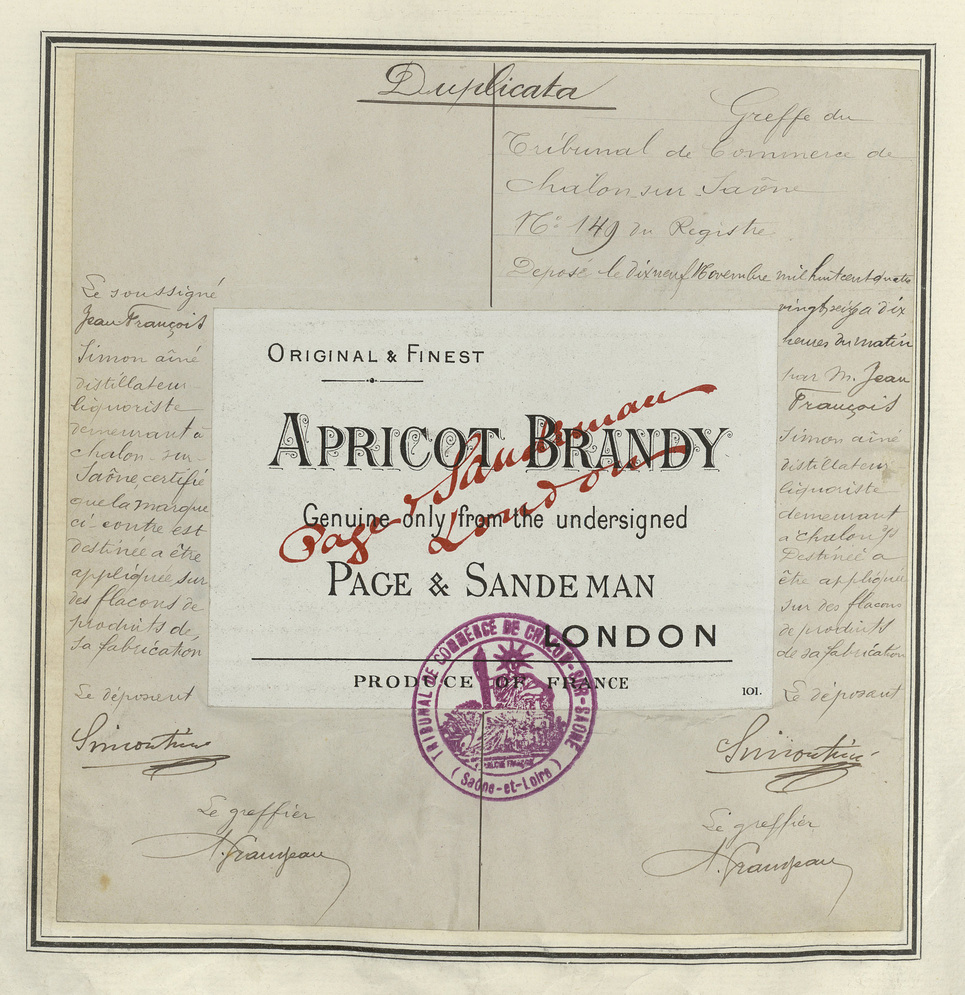 Duplicata
Greffe du
Tribunal de Commerce de
Chalon sur Saône
No 149 du Registre
Déposé le dix neuf Novembre mil huit cent quatre
vingt seize a dix
heures du matin
par M. Jean
François
Simon aîné
distillateur
liquoriste
demeurant
a Chalon s/s
Destinée a
être appliquée
sur des flacons
de produits
de sa fabrication
Le déposant
Simon aîné
Le greffier
Le soussigné
Jean François
Simon aîné
distillateur
liquoriste
demeurant à
Chalon-sur-
Saône, certifie
que la marque
ci-contre est
destinée a être
appliquée sur
des flacons de
produits de
sa fabrication
Le déposant
Simon aîné
Le greffier
ORIGINAL & FINEST
APRICOT BRANDY
Genuine only from the undersigned
PAGE & SANDEMAN
LONDON
PRODUCE OF FRANCE
101.
Page & Sandeman
London
TRIBUNAL DE COMMERCE DE CHALON-SUR-SAONE
(Saône-et-Loire)